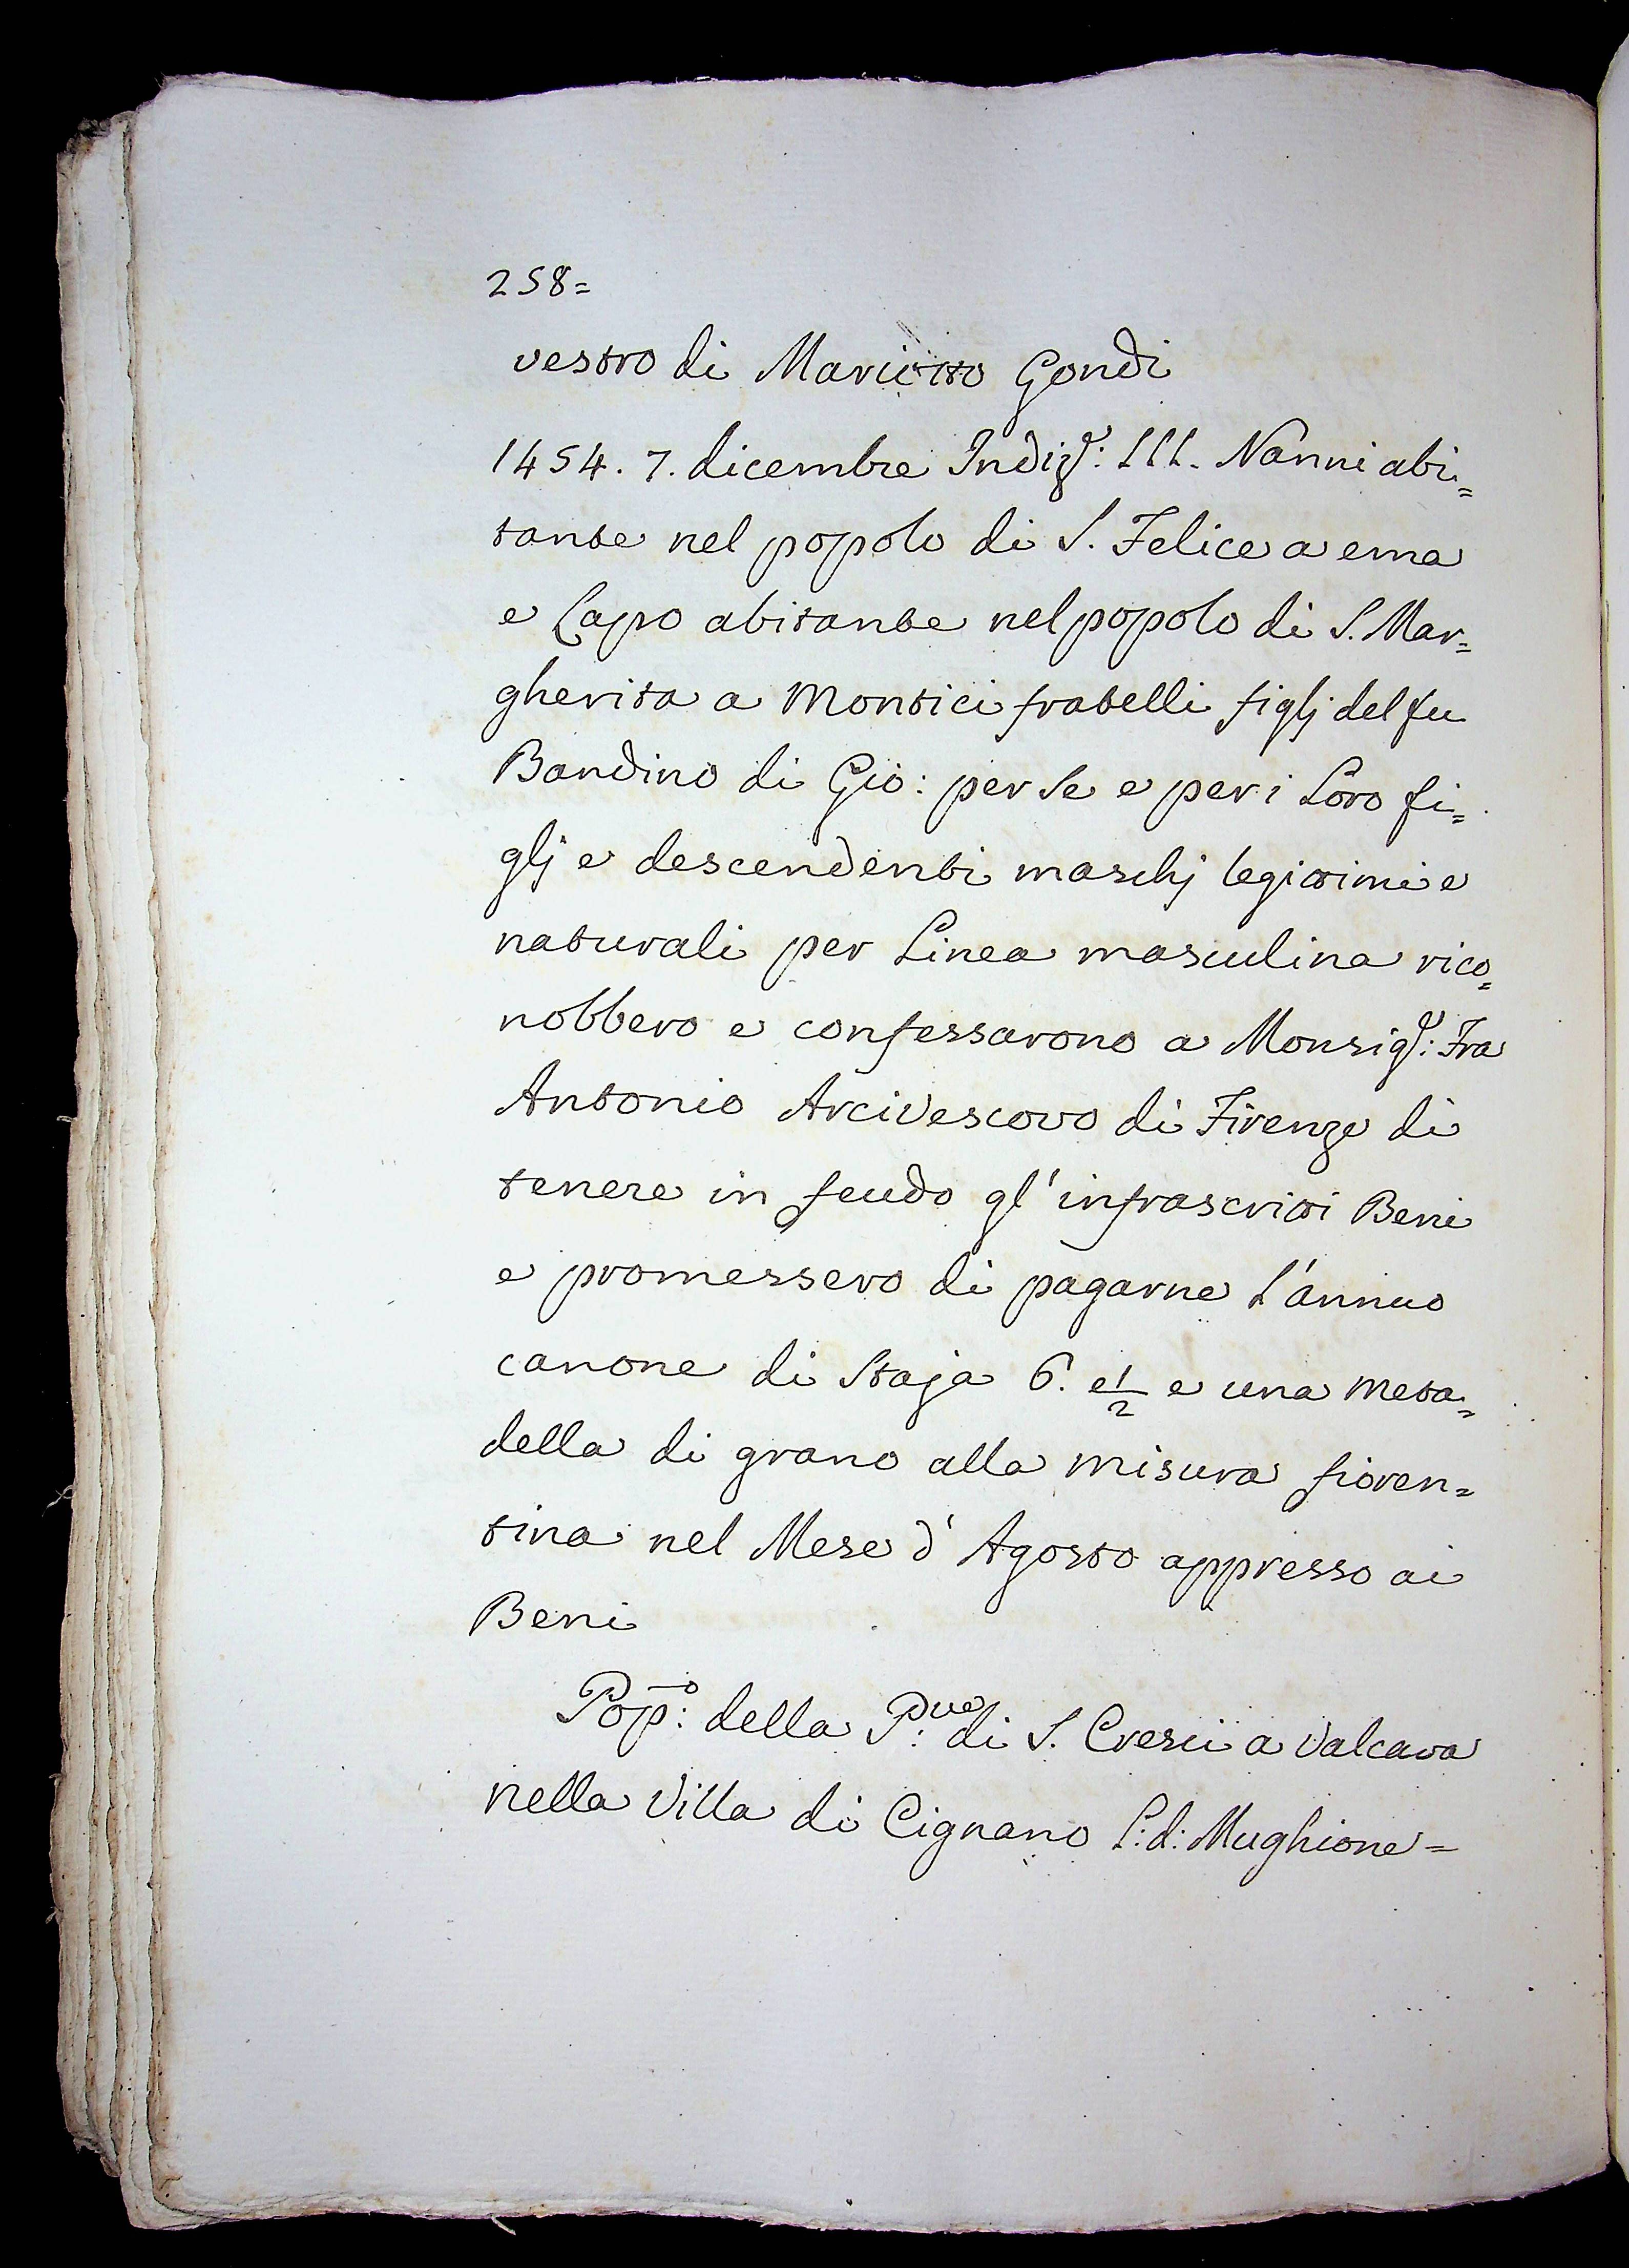 258=
vestro di Mariotto Gondi
1454. 7. dicembre Indiz.e: III. Nanni abi=
tante nel popolo di S. Felice a ema
e Lapo abitante nel popolo di S. Mar=
gherita a Montici fratelli figlj del fu
Bandino di Gio: per se e per i Loro fi=
glj e descendenti maschj legittimi e
naturali per Linea masculina rico=
nobbero e confessarono a Monsig.e: Fra
Antonio Arcivescovo di Firenze di
tenere in feudo gl'infrascritti Beni
e promessero di pagarne l'annuo
canone di Staja 6. e 1/2 e una meta=
della di grano alla misura fioren=
tina nel Mese d'Agosto appresso ai
Beni
Pop:o della P:ve di S. Cresci a Valcava
nella Villa di Cignano L: d: Mughione=